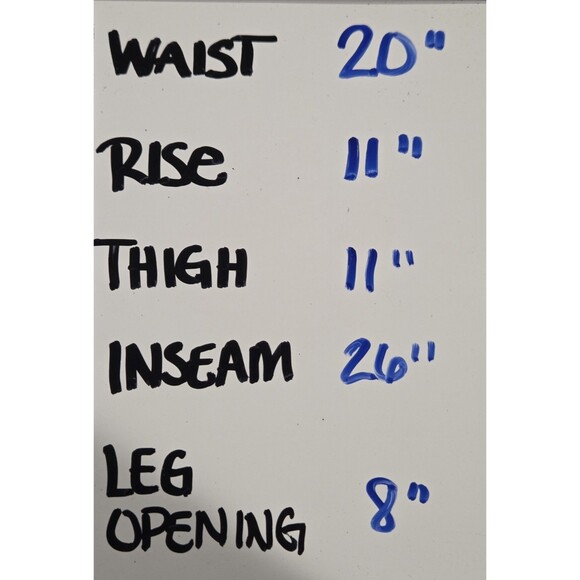 WAIST 20"
RISe 11"
THIGH 11"
INSEAM 26"
LEG
OPENING 8"